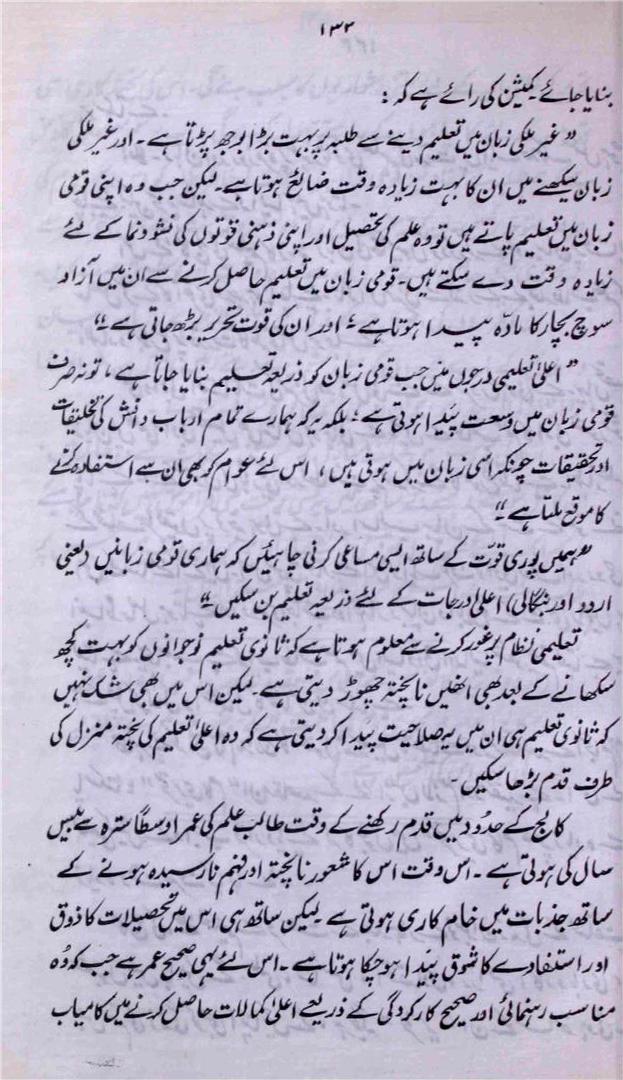 ۱۳۲
بنایا جائے کمیشن کی رائے ہے کہ :
”غیر ملکی زبان میں تعلیم دینے سے طلبہ پر بہت بڑا بوجھ پڑتا ہے ۔ اور غیر ملکی
زبان سیکھنے میں ان کا بہت زیادہ وقت ضائع ہوتا ہے۔ لیکن جب وہ اپنی قومی
زبان میں تعلیم پاتے ہیں تو وہ علم کی تحصیل اور اپنی ذہنی قوتوں کی نشوونما کے لئے
زیادہ وقت دے سکتے ہیں۔ قومی زبان میں تعلیم حاصل کرنے سے ان میں آزاد
سوچ بچار کا مادّہ پیدا ہوتا ہے ؛ اور ان کی قوت تحریر بڑھ جاتی ہے ۔“
”اعلیٰ تعلیمی درجوں میں جب قومی زبان کو ذریعۂ تعلیم بنایا جاتا ہے ، تو نہ صرف
قومی زبان میں وسعت پَیدا ہوتی ہے ؛ بلکہ یہ کہ ہمارے تمام ارباب دانش کی تخلیقات
اور تحقیقات چونکہ اسی زبان میں ہوتی ہیں ، اس لئے عوام کو بھی ان سے استفادہ کرنے
کا موقع ملتا ہے ۔“
”ہمیں پوری قوّت کے ساتھ ایسی مساعی کرنی چاہئیں کہ ہماری قومی زبانیں (یعنی
اردو اور بنگالی) اعلیٰ درجات کے لئے ذریعہ تعلیم بن سکیں ۔“
تعلیمی نظام پر غور کرنے سے معلوم ہوتا ہے کہ ثانوی تعلیم نوجوانوں کو بہت کچھ
سکھانے کے بعد بھی انھیں ناپختہ چھوڑ دیتی ہے ۔ لیکن اس میں بھی شک نہیں
کہ ثانوی تعلیم ہی ان میں یہ صلاحیت پَیدا کر دیتی ہے کہ وہ اعلیٰ تعلیم کی پختہ منزل کی
طرف قدم بڑھا سکیں ۔
کالج کے حدُود میں قدم رکھنے کے وقت طالب علم کی عمر اوسطاً سترہ سے بیس
سال کی ہوتی ہے ۔ اس وقت اس کا شعور ناپختہ اور فہم نارسیدہ ہونے کے
ساتھ جذبات میں خام کاری ہوتی ہے ۔ لیکن ساتھ ہی اس میں تحصیلات کا ذوق
اور استفادے کا شوق پَیدا ہو چکا ہوتا ہے ۔ اس لئے یہی صحیح عمر ہے جب کہ وُہ
مناسب رہنمائی اور صحیح کارکردگی کے ذریعے اعلیٰ کمالات حاصل کرنے میں کامیاب